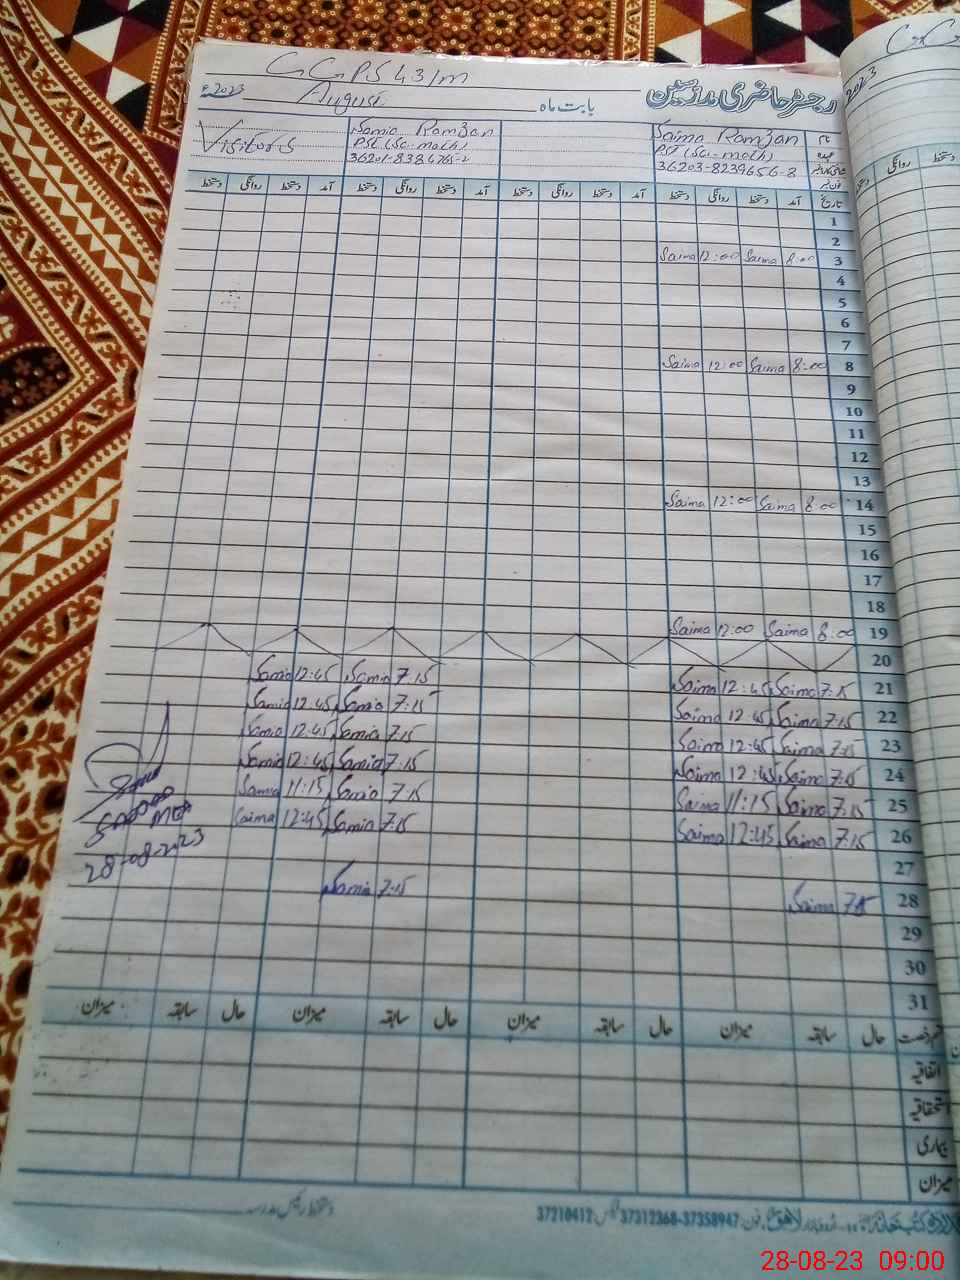 GGPS 43/m
2023ء August بابت ماہ رجسٹر حاضری مدرسین
Visitors
Samia Ramzan
PST (Sci-math)
36201-8384765-2
Saima Ramzan
PST (Sci-math)
36203-8239656-8
نام
عہدہ
آمد دستخط روانگی دستخط آمد دستخط روانگی دستخط آمد دستخط روانگی دستخط آمد دستخط روانگی دستخط تاریخ
1
2
Saima 12:00 Saima 8:00 3
4
5
6
7
Saima 12:00 Saima 8:00 8
9
10
11
12
13
Saima 12:00 Saima 8:00 14
15
16
17
18
Saima 12:00 Saima 8:00 19
20
Samia 12:45 Samia 7:15 Saima 12:45 Saima 7:15 21
Samia 12:45 Samia 7:15 Saima 12:45 Saima 7:15 22
Samia 12:45 Samia 7:15 Saima 12:45 Saima 7:15 23
Samia 12:45 Samia 7:15 Saima 12:45 Saima 7:15 24
Samia 11:15 Samia 7:15 Saima 11:15 Saima 7:15 25
Saima 12:45 Samia 7:15 Saima 12:45 Saima 7:15 26
27
Samia 7:15 Saima 7:15 28
29
30
31
MEA
28-08-2023
حال سابقہ میزان حال سابقہ میزان حال سابقہ میزان حال سابقہ میزان
اتفاقیہ
استحقاقیہ
بیماری
میزان
دستخط رئیس مدرسہ
فون: 37358947-37312368 فیکس: 37210412
2023
روانگی دستخط
28-08-23 09:00